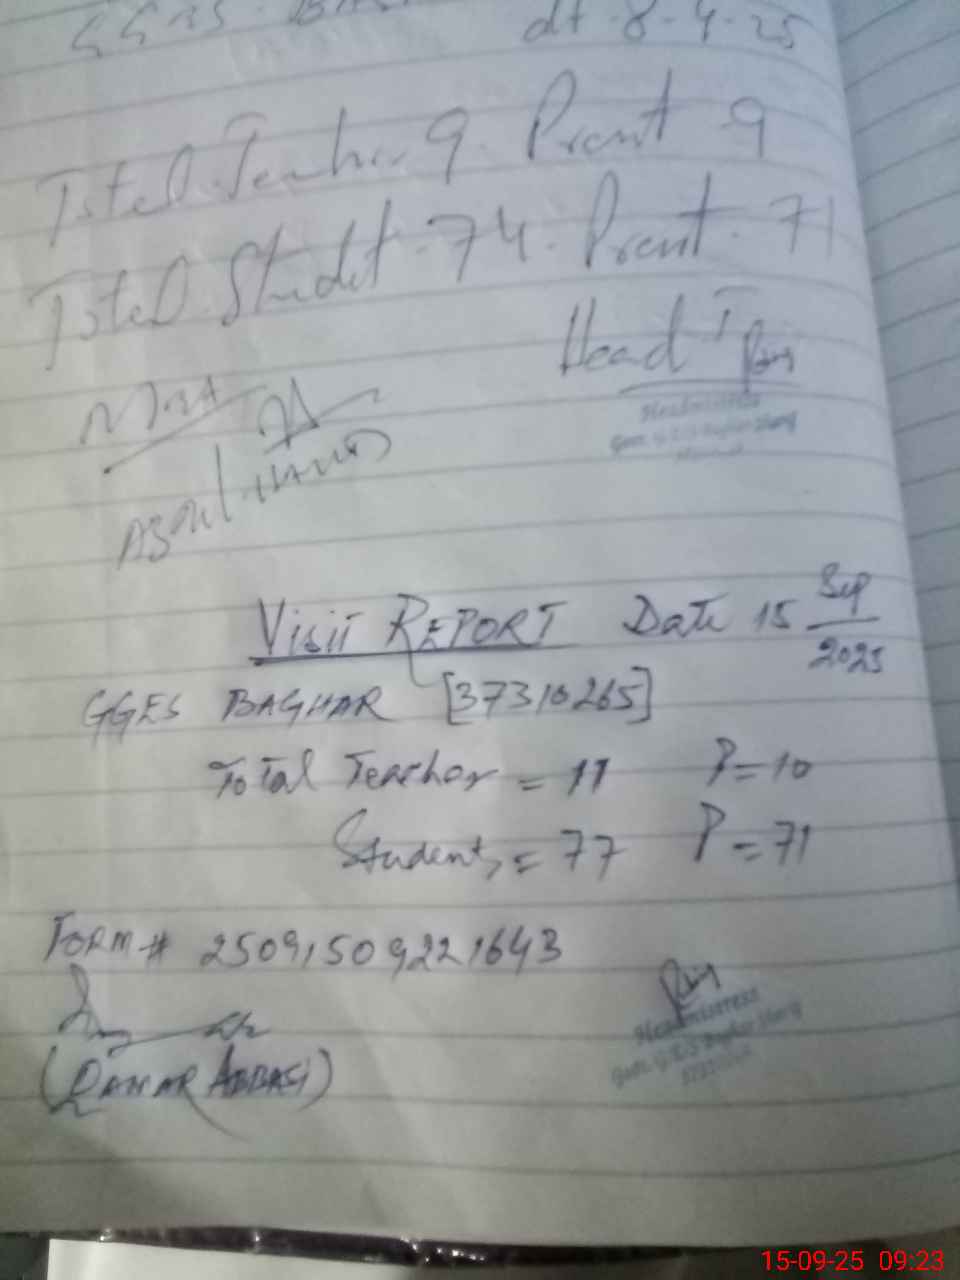 dt. 8-4-25
Total Teacher. 9. Prent 9
Total Studet. 74. Prent. 71
Head T
Headmistress
Visit REPORT Date 15 Sep 2025
GGES BAGHAR [37310265]
Total Teacher = 11 P=10
Students = 77 P=71
FORM # 250915092221643
(QAMAR ABBASI)
Headmistress
15-09-25 09:23